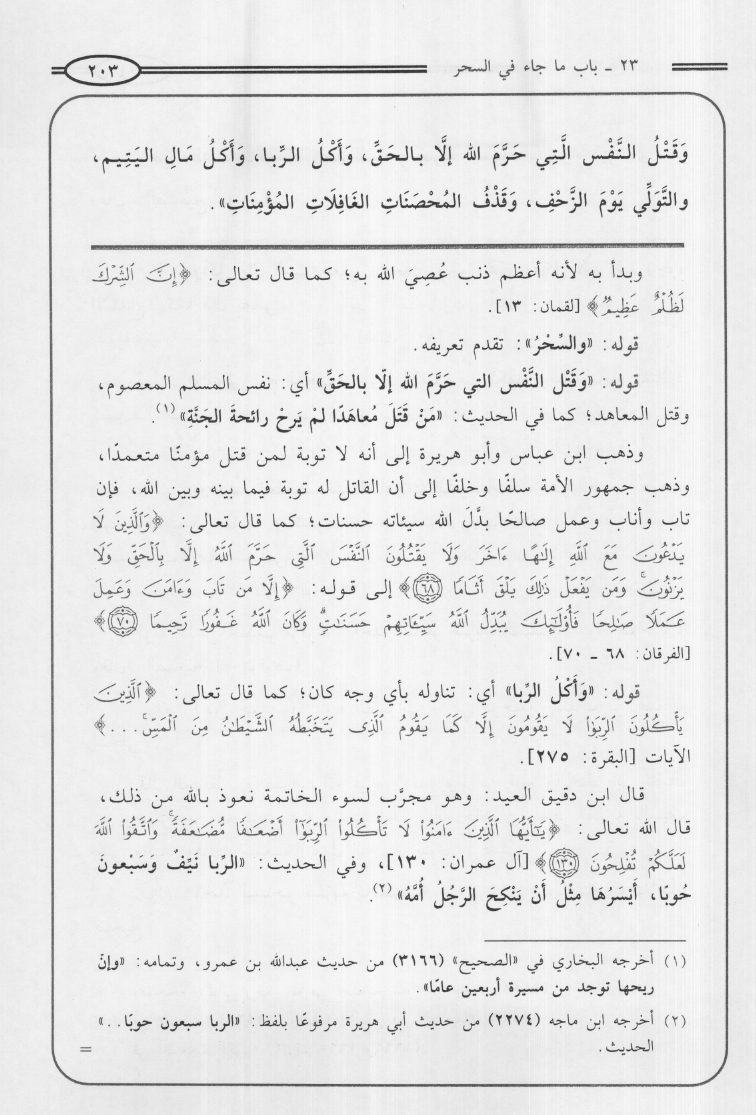 ٢٣ ـ باب ما جاء في السحر
٢٠٣
وَقَتْلُ النَّفْس الَّتِي حَرَّمَ الله إلَّا بالحَقِّ، وَأَكْلُ الرِّبا، وَأَكْلُ مَالِ اليَتِيم،
والتَّوَلِّي يَوْمَ الزَّحْفِ، وَقَذْفُ المُحْصَنَاتِ الغَافِلَاتِ المُؤْمِنَاتِ».
وبدأ به لأنه أعظم ذنب عُصِيَ الله به؛ كما قال تعالى: ﴿إِنَّ ٱلشِّرْكَ
لَظُلْمٌ عَظِيمٌ﴾ [لقمان: ١٣].
قوله: «والسِّحْرُ»: تقدم تعريفه.
قوله: «وَقَتْل النَّفْس التي حَرَّمَ الله إلّا بالحَقِّ» أي: نفس المسلم المعصوم،
وقتل المعاهد؛ كما في الحديث: «مَنْ قَتَلَ مُعاهَدًا لمْ يَرحْ رائحةَ الجَنَّةِ»(١).
وذهب ابن عباس وأبو هريرة إلى أنه لا توبة لمن قتل مؤمنًا متعمدًا،
وذهب جمهور الأمة سلفًا وخلفًا إلى أن القاتل له توبة فيما بينه وبين الله، فإن
تاب وأناب وعمل صالحًا بدَّلَ الله سيئاته حسنات؛ كما قال تعالى: ﴿وَٱلَّذِينَ لَا
يَدْعُونَ مَعَ ٱللَّهِ إِلَٰهًا ءَاخَرَ وَلَا يَقْتُلُونَ ٱلنَّفْسَ ٱلَّتِى حَرَّمَ ٱللَّهُ إِلَّا بِٱلْحَقِّ وَلَا
يَزْنُونَۚ وَمَن يَفْعَلْ ذَٰلِكَ يَلْقَ أَثَامًا ٦٨﴾ إلى قوله: ﴿إِلَّا مَن تَابَ وَءَامَنَ وَعَمِلَ
عَمَلًا صَٰلِحًا فَأُو۟لَٰٓئِكَ يُبَدِّلُ ٱللَّهُ سَيِّـَٔاتِهِمْ حَسَنَٰتٍۗ وَكَانَ ٱللَّهُ غَفُورًا رَّحِيمًا ٧٠﴾
[الفرقان: ٦٨ ـ ٧٠].
قوله: «وَأَكْلُ الرِّبا» أي: تناوله بأي وجه كان؛ كما قال تعالى: ﴿ٱلَّذِينَ
يَأْكُلُونَ ٱلرِّبَوٰا۟ لَا يَقُومُونَ إِلَّا كَمَا يَقُومُ ٱلَّذِى يَتَخَبَّطُهُ ٱلشَّيْطَٰنُ مِنَ ٱلْمَسِّۚ...﴾
الآيات [البقرة: ٢٧٥].
قال ابن دقيق العيد: وهو مجرَّب لسوء الخاتمة نعوذ بالله من ذلك،
قال الله تعالى: ﴿يَٰٓأَيُّهَا ٱلَّذِينَ ءَامَنُوا۟ لَا تَأْكُلُوا۟ ٱلرِّبَوٰٓا۟ أَضْعَٰفًا مُّضَٰعَفَةًۖ وَٱتَّقُوا۟ ٱللَّهَ
لَعَلَّكُمْ تُفْلِحُونَ ١٣٠﴾ [آل عمران: ١٣٠]، وفي الحديث: «الرِّبا نَيِّفٌ وَسَبْعونَ
حُوبًا، أَيْسَرُهَا مِثْلُ أَنْ يَنْكِحَ الرَّجُلُ أُمَّهُ»(٢).
(١) أخرجه البخاري في «الصحيح» (٣١٦٦) من حديث عبدالله بن عمرو، وتمامه: «وإنّ
ريحها توجد من مسيرة أربعين عامًا».
(٢) أخرجه ابن ماجه (٢٢٧٤) من حديث أبي هريرة مرفوعًا بلفظ: «الربا سبعون حوبًا..»
الحديث.
=